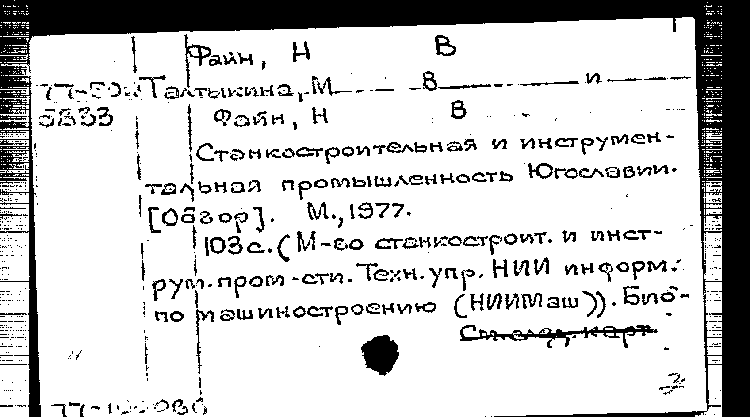 Файн, Н В
Талтыкина, М В и
5833 Файн, Н В
Станкостроительная и инструмен-
тальная промышленность Югославии.
[Обзор]. М., 1977.
103с. (М-во станкостроит. и инст-
рум. пром-сти. Техн. упр. НИИ информ.
по машиностроению (НИИМаш)). Био-
См. след. карт.